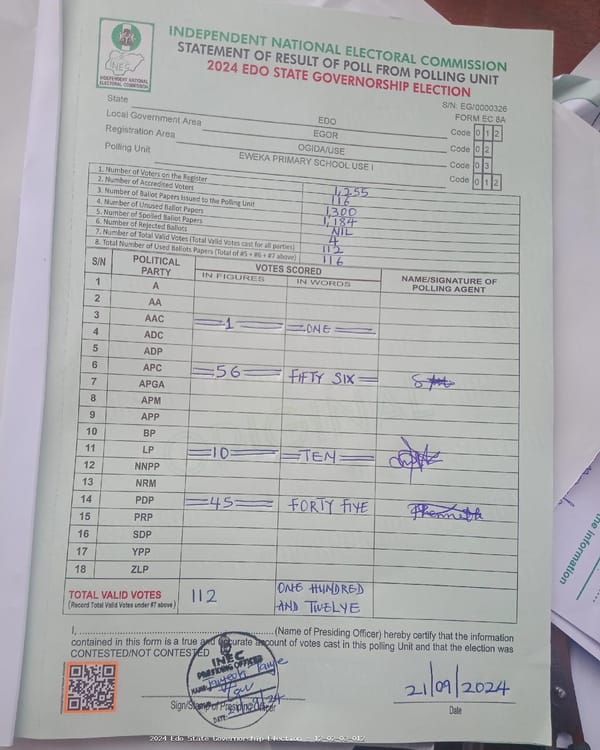 INEC
INDEPENDENT NATIONAL ELECTORAL COMMISSION
INDEPENDENT NATIONAL ELECTORAL COMMISSION
STATEMENT OF RESULT OF POLL FROM POLLING UNIT
2024 EDO STATE GOVERNORSHIP ELECTION
S/N: EG/0000326
FORM EC 8A
State EDO Code 0 1 2
Local Government Area EGOR Code 0 2
Registration Area OGIDA/USE Code 0 3
Polling Unit EWEKA PRIMARY SCHOOL USE I Code 0 1 2
1. Number of Voters on the Register 1,255
2. Number of Accredited Voters 116
3. Number of Ballot Papers Issued to the Polling Unit 1,300
4. Number of Unused Ballot Papers 1,184
5. Number of Spoiled Ballot Papers NIL
6. Number of Rejected Ballots 4
7. Number of Total Valid Votes (Total Valid Votes cast for all parties) 112
8. Total Number of Used Ballots Papers (Total of #5 + #6 + #7 above) 116
S/N POLITICAL PARTY VOTES SCORED NAME/SIGNATURE OF POLLING AGENT
IN FIGURES IN WORDS
1 A
2 AA
3 AAC 1 ONE
4 ADC
5 ADP
6 APC 56 FIFTY SIX
7 APGA
8 APM
9 APP
10 BP
11 LP 10 TEN
12 NNPP
13 NRM
14 PDP 45 FORTY FIVE
15 PRP
16 SDP
17 YPP
18 ZLP
TOTAL VALID VOTES 112 ONE HUNDRED
(Record Total Valid Votes under #7 above) AND TWELVE
I, (Name of Presiding Officer) hereby certify that the information
contained in this form is a true and accurate account of votes cast in this polling Unit and that the election was
CONTESTED/NOT CONTESTED
INEC
PRESIDING OFFICER
NAME:
DATE: 21/9/24
Sign/Stamp of Presiding Officer
21/09/2024
Date
2024 Edo State Governorship Election - 12-02-03-012
the information